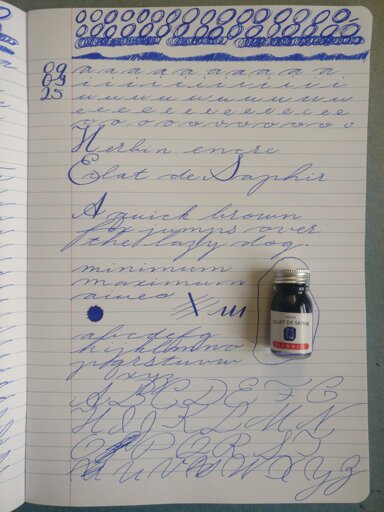 09
04
25
a a a a a a a a a a
i i i i i i i i i i
u u u u u u u u u
e e e e e e e e e
o o o o o o o o o o
Herbin encre
Eclat de Saphir
A quick brown
fox jumps over
the lazy dog.
minimum
maximum
ECLAT DE SAPHIR
HERBIN
abcdefg
hijklmno
pqrstuvw
xyz
A B C D E F G
H I J K L M N
O P Q R S T
U V W X Y Z